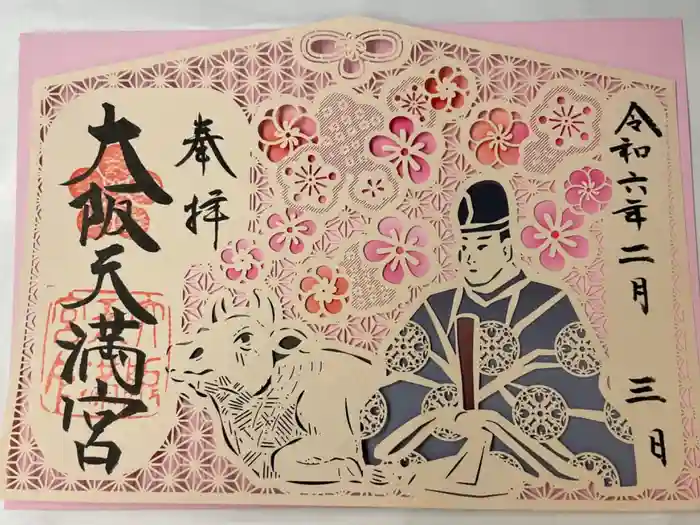 令和六年二月三日
奉拝
大阪天満宮